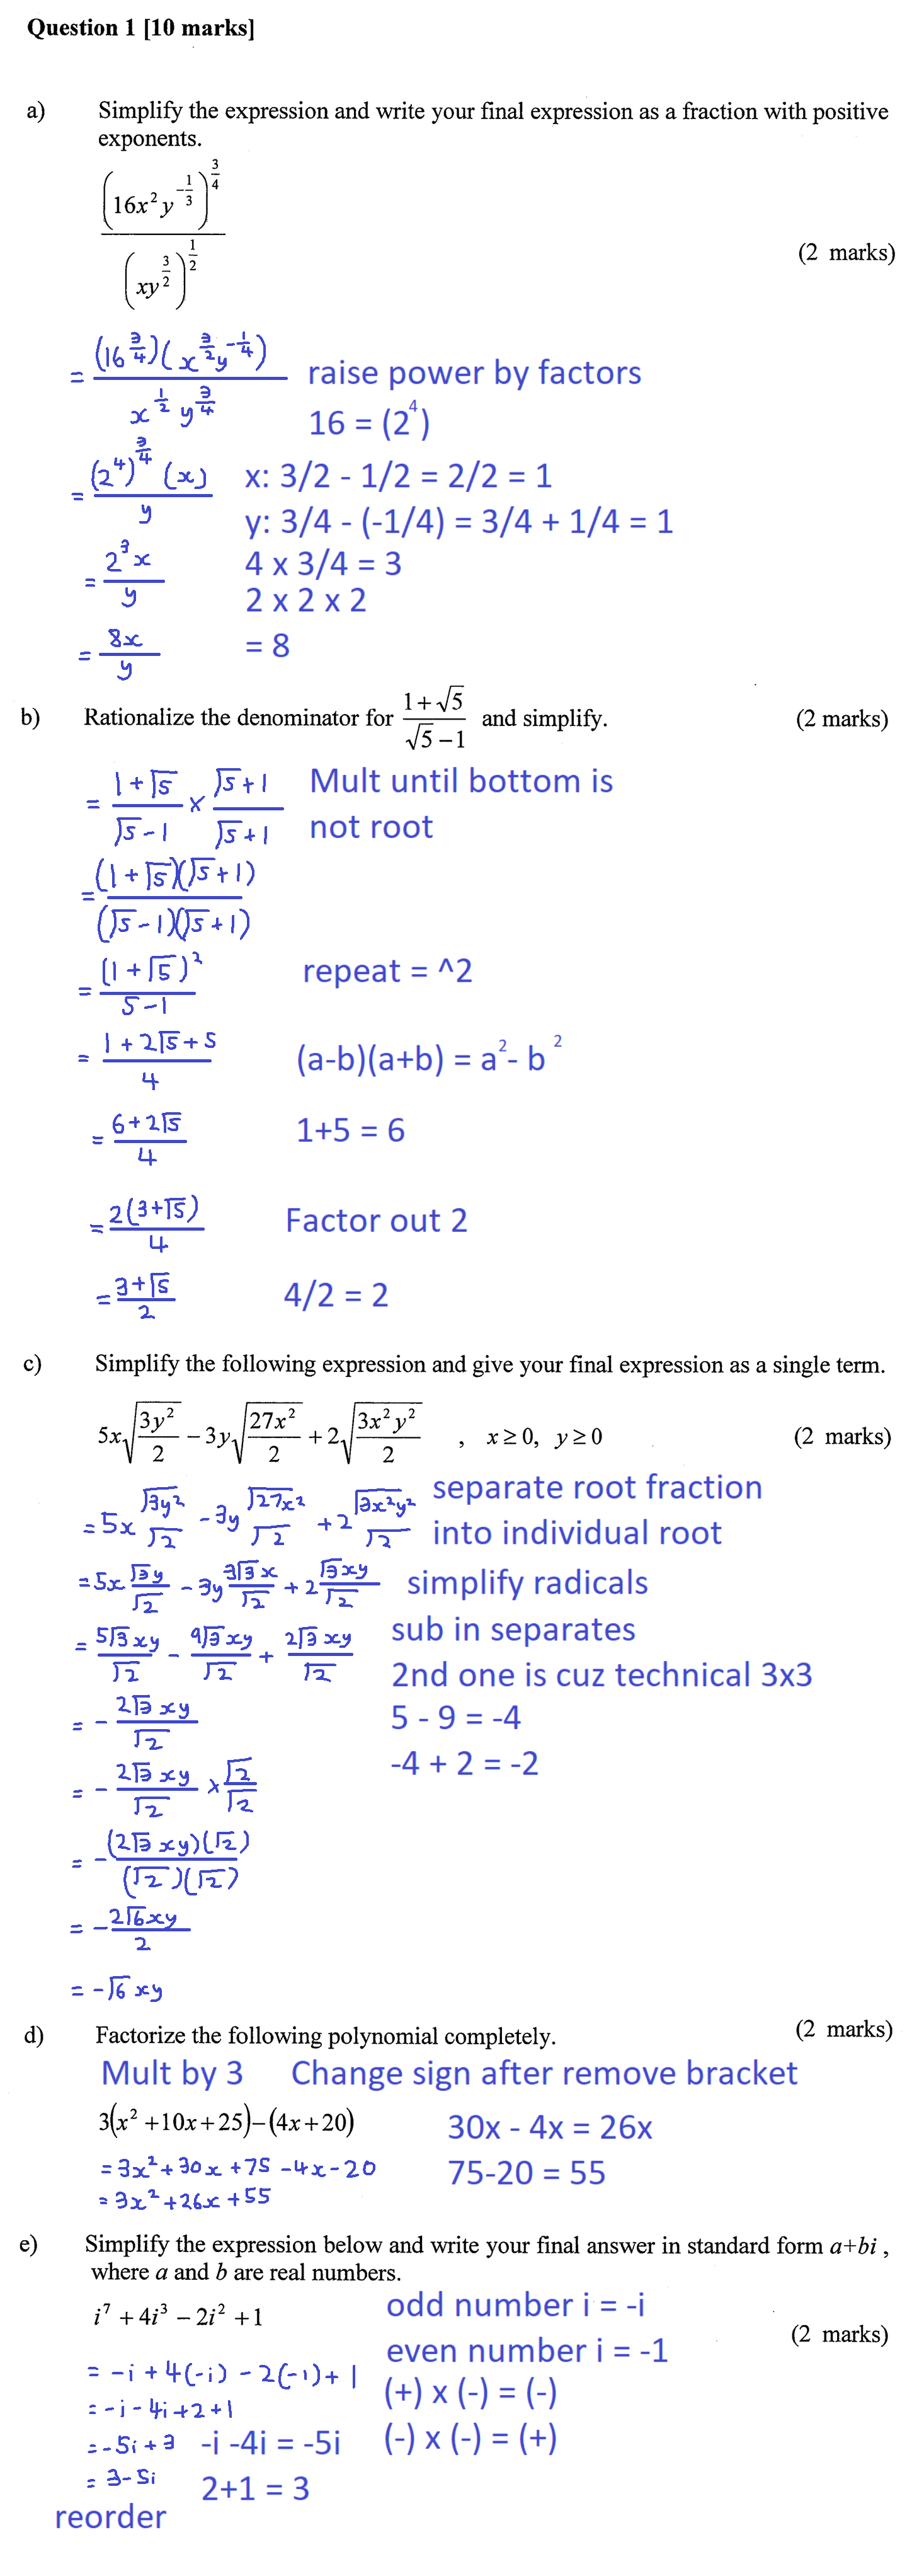 Question 1 [10 marks]
a) Simplify the expression and write your final expression as a fraction with positive
exponents.
(16x² y^(-1/3))^(3/4) / (xy^(3/2))^(1/2)
(2 marks)
= (16^(3/4))(x^(3/2) y^(-1/4)) / x^(1/2) y^(3/4) raise power by factors
16 = (2⁴)
= (2⁴)^(3/4) (x) / y x: 3/2 - 1/2 = 2/2 = 1
y: 3/4 - (-1/4) = 3/4 + 1/4 = 1
= 2³x / y 4 x 3/4 = 3
2 x 2 x 2
= 8x / y = 8
b) Rationalize the denominator for (1+√5)/(√5−1) and simplify. (2 marks)
= (1+√5)/(√5-1) × (√5+1)/(√5+1) Mult until bottom is
not root
= (1+√5)(√5+1) / (√5-1)(√5+1)
= (1+√5)² / 5-1 repeat = ^2
= 1+2√5+5 / 4 (a-b)(a+b) = a²- b²
= 6+2√5 / 4 1+5 = 6
= 2(3+√5) / 4 Factor out 2
= 3+√5 / 2 4/2 = 2
c) Simplify the following expression and give your final expression as a single term.
5x√(3y²/2) − 3y√(27x²/2) + 2√(3x²y²/2) , x ≥ 0, y ≥ 0 (2 marks)
= 5x √3y²/√2 - 3y √27x²/√2 + 2 √3x²y²/√2 separate root fraction
into individual root
= 5x √3y/√2 - 3y 3√3x/√2 + 2 √3xy/√2 simplify radicals
= 5√3xy/√2 - 9√3xy/√2 + 2√3xy/√2 sub in separates
2nd one is cuz technical 3x3
= - 2√3xy/√2 5 - 9 = -4
-4 + 2 = -2
= - 2√3xy/√2 × √2/√2
= - (2√3xy)(√2) / (√2)(√2)
= - 2√6xy / 2
= -√6xy
d) Factorize the following polynomial completely. (2 marks)
Mult by 3 Change sign after remove bracket
3(x² +10x+25)−(4x+20) 30x - 4x = 26x
= 3x²+30x+75-4x-20 75-20 = 55
= 3x²+26x+55
e) Simplify the expression below and write your final answer in standard form a+bi ,
where a and b are real numbers.
i⁷ + 4i³ − 2i² + 1 odd number i = -i
(2 marks)
even number i = -1
= -i + 4(-i) - 2(-1) + 1 (+) x (-) = (-)
= -i - 4i + 2 + 1
= -5i + 3 -i -4i = -5i (-) x (-) = (+)
= 3-5i 2+1 = 3
reorder